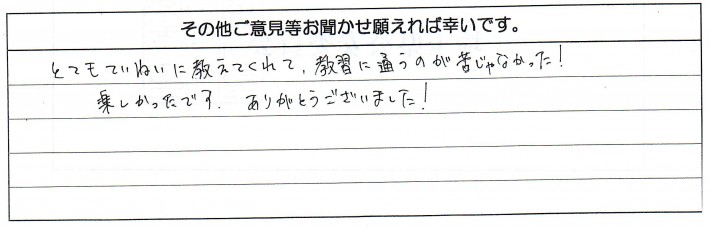 その他ご意見等お聞かせ願えれば幸いです。
とてもていねいに教えてくれて、教習に通うのが苦じゃなかった!
楽しかったです。ありがとうございました!